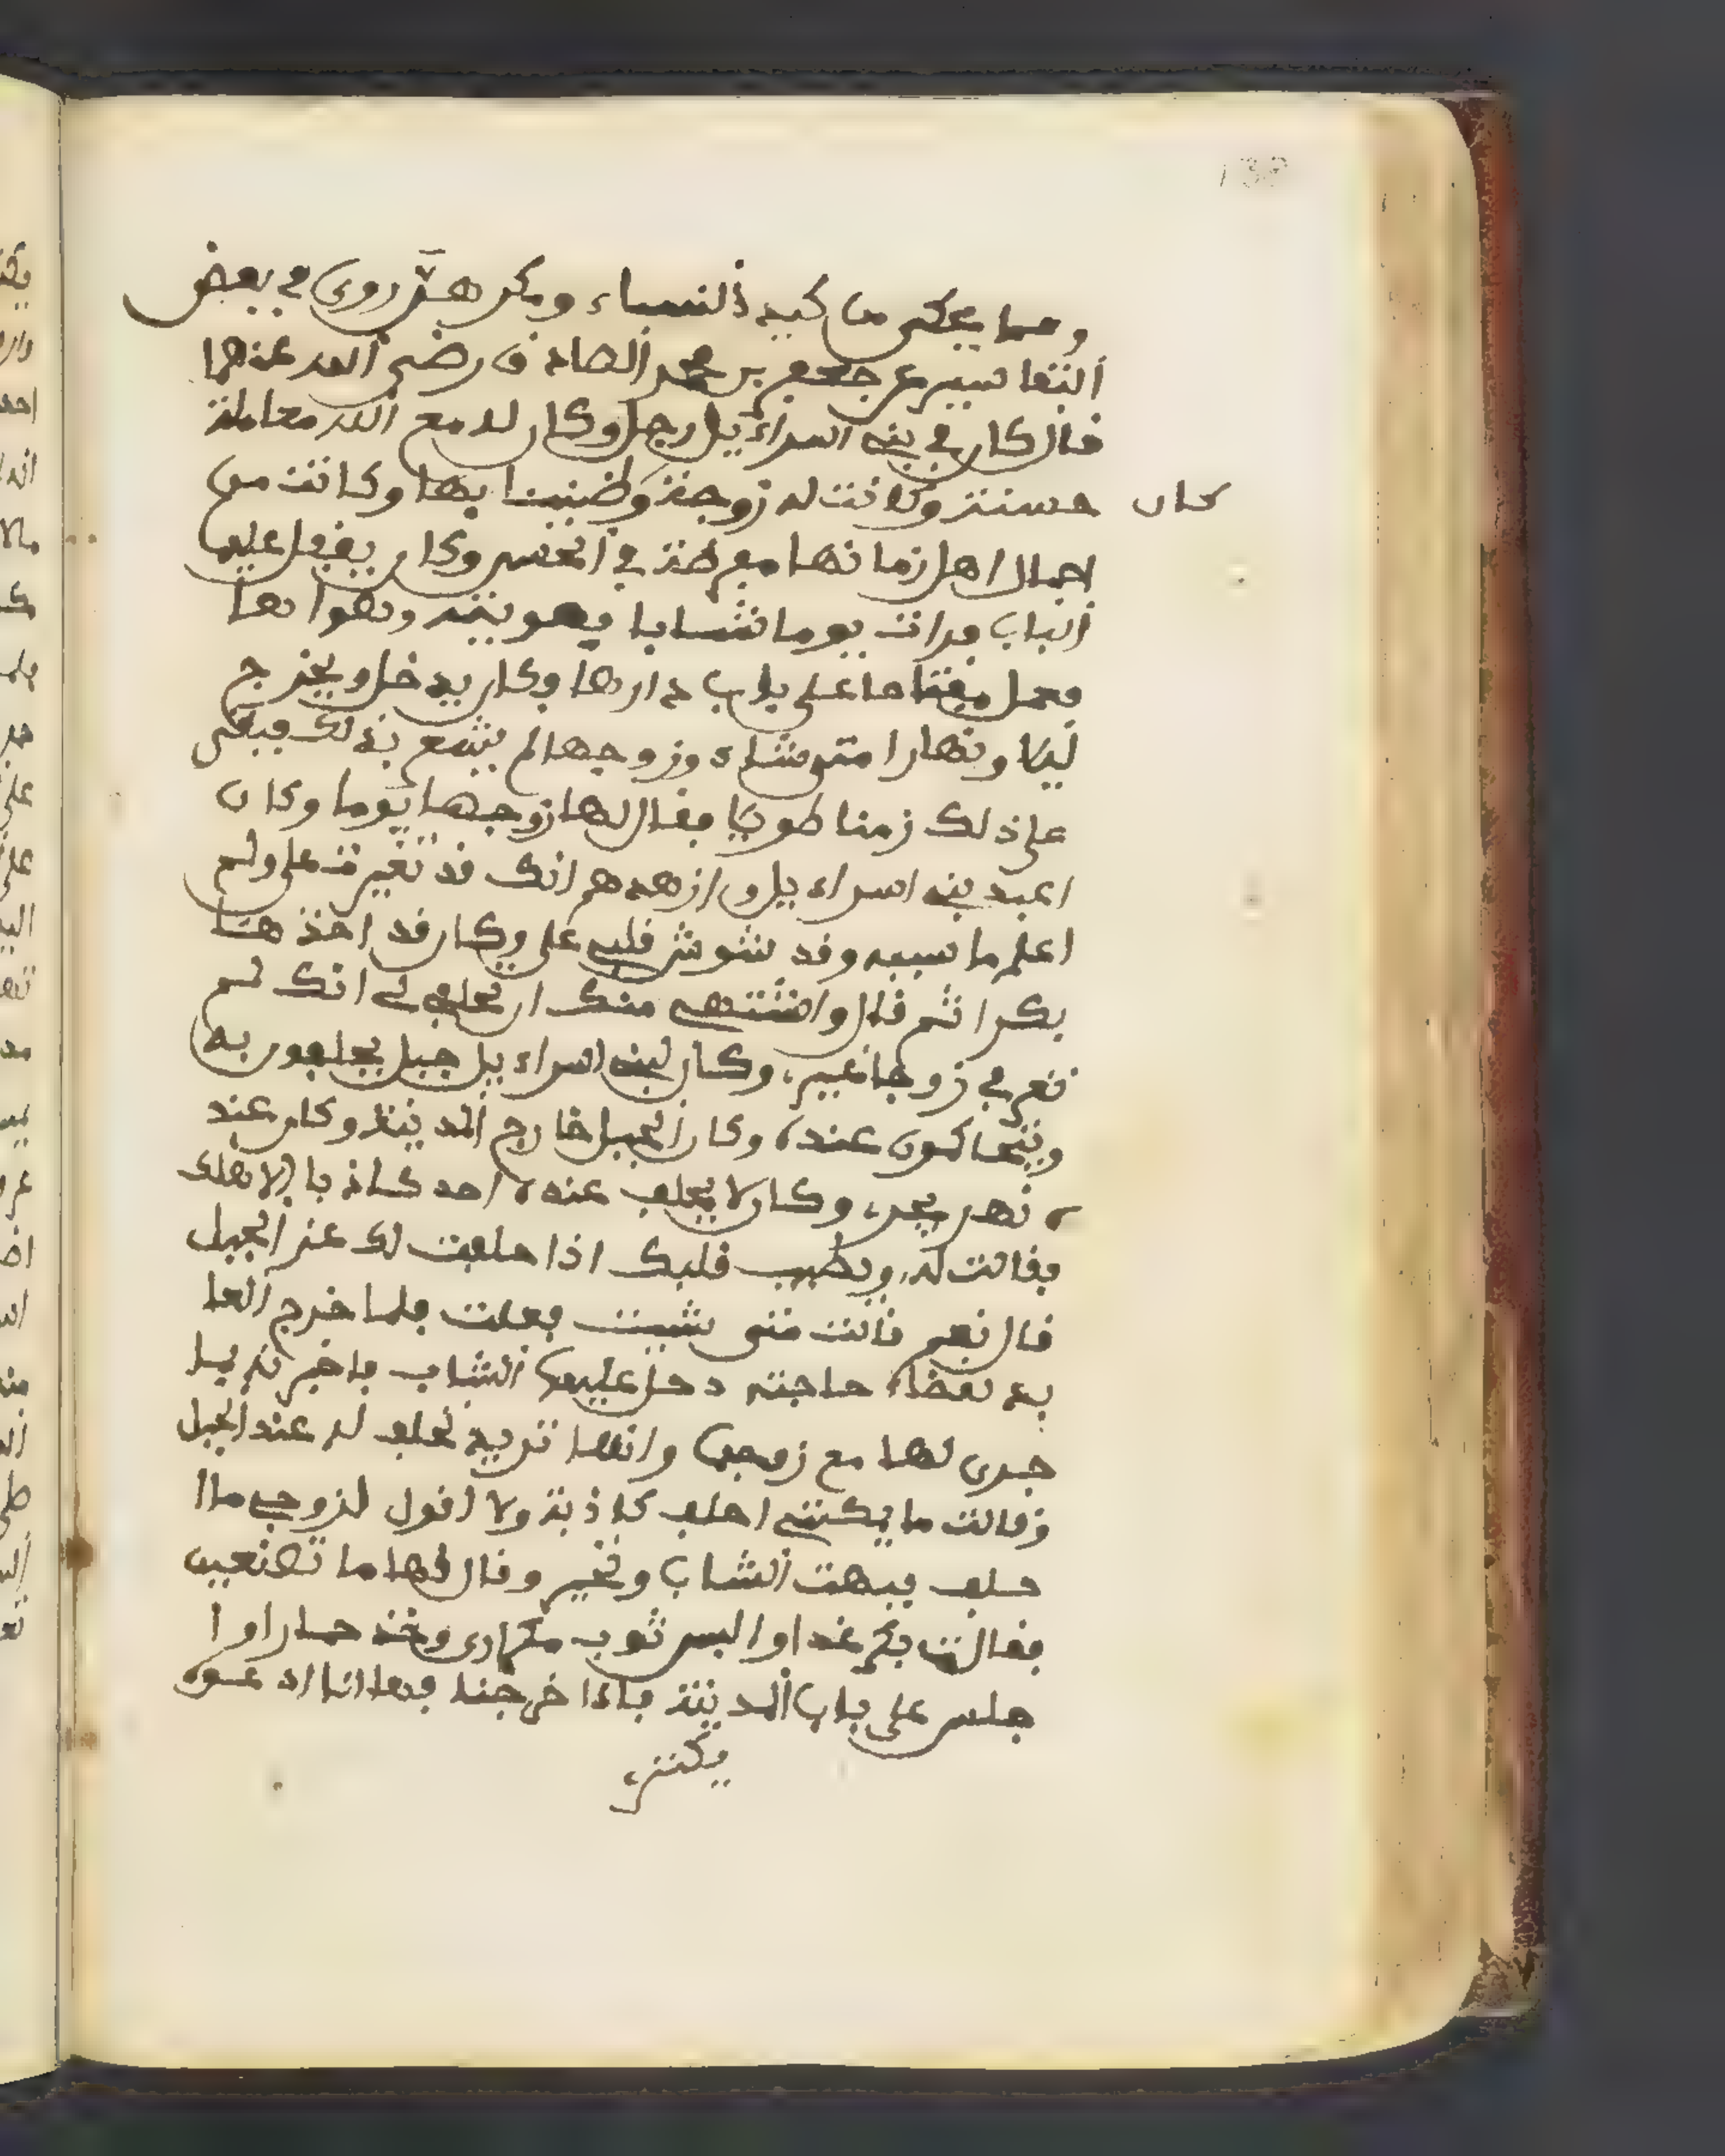 138
ومما يحكى من كيد النساء ومكرهن روى في بعض
التفاسير عن جعفر بن محمد الصادق رضي الله عنهما
قال كان في بني اسراءيل رجل وكان له مع الله معاملة
حسنة وكانت له زوجة وكان ضنينا بها وكانت من
اجمال اهل زمانها مفرطة في الحسن وكان يقفل عليها
الباب فرات يوما شابا فهويته وهواها
فعمل مفتاحا على باب دارها وكان يدخل ويخرج
ليلا ونهارا متى شاء وزوجها لم يشعر بذلك فبقى
على ذلك زمنا طويلا فقال لها زوجها يوما وكان
اعبد بني اسراءيل وازهدهم انك قد تغيرت على ولم
اعلم ما سببه وقد تشوش قلبي على وكان قد اخذها
بكرا ثم قال واشتهي منك ان تحلفي لي انك لم
تعرفي زوجا غيري وكان لبني اسراءيل جبل يحلفون به
ويتحاكمون عنده وكان الجبل خارج المدينة وكان عند
ه نهر يجرى وكان لا يحلف عنده احد كاذبا الا هلك
فقالت له ويطيب قلبك اذا حلفت لك عند الجبل
قال نعم قالت متى شيت فعلت فلما خرج العا
بد لقضاء حاجته دخل عليها الشاب فاخبرته بما
جرى لها مع زوجها وانها تريد تحلف له عند الجبل
وقالت ما يمكنني احلف كاذبة ولا اقول لزوجي ما ا
حلف فبهت الشاب وتحير وقال لها ما تصنعين
فقالت بكر غدا والبس ثوب مكارى وخذ حمارا وا
جلس على باب المدينة فاذا خرجنا فانا ادعوه
يكترى